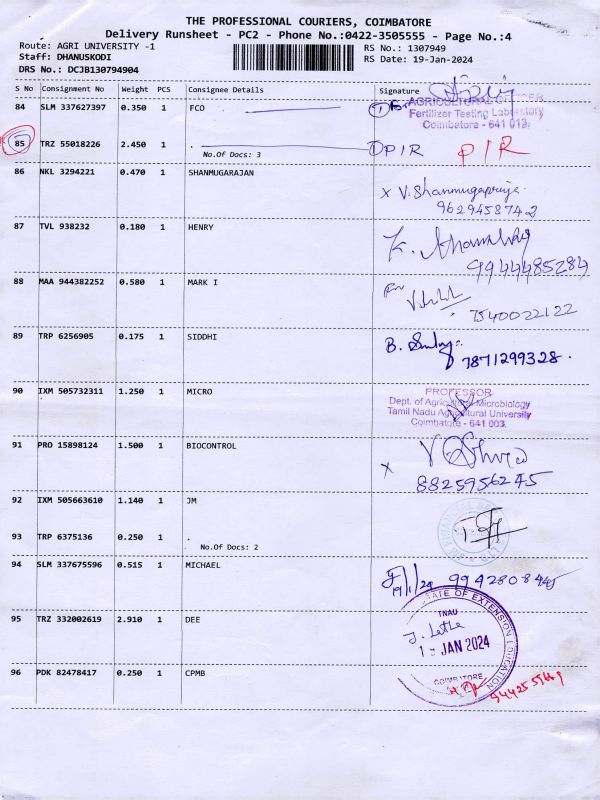 THE PROFESSIONAL COURIERS, COIMBATORE
Delivery Runsheet - PC2 - Phone No.:0422-3505555 - Page No.:4
Route: AGRI UNIVERSITY -1
RS No.: 1307949
Staff: DHANUSKODI
RS Date: 19-Jan-2024
DRS No.: DCJB130794904
S No Consignment No Weight PCS Consignee Details Signature
84 SLM 337627397 0.350 1 FCO
AGRICULTURAL OFFICER
Fertilizer Testing Laboratory
Coimbatore - 641 013.
85 TRZ 55018226 2.450 1 .
No.Of Docs: 3
PIR PIR
86 NKL 3294221 0.470 1 SHANMUGARAJAN
x V. Shanmugapriya
9629458742
87 TVL 938232 0.180 1 HENRY
9944485284
88 MAA 944382252 0.580 1 MARK I
7540022122
89 TRP 6256905 0.175 1 SIDDHI
7871299328.
90 IXM 505732311 1.250 1 MICRO
PROFESSOR
Dept. of Agricultural Microbiology
Tamil Nadu Agricultural University
Coimbatore - 641 003.
91 PRO 15898124 1.500 1 BIOCONTROL
x
8825956245
92 IXM 505663610 1.140 1 JM
93 TRP 6375136 0.250 1 .
No.Of Docs: 2
94 SLM 337675596 0.515 1 MICHAEL
19/1/24
95 TRZ 332002619 2.910 1 DEE
TNAU
JAN 2024
COIMBATORE
96 PDK 82478417 0.250 1 CPMB